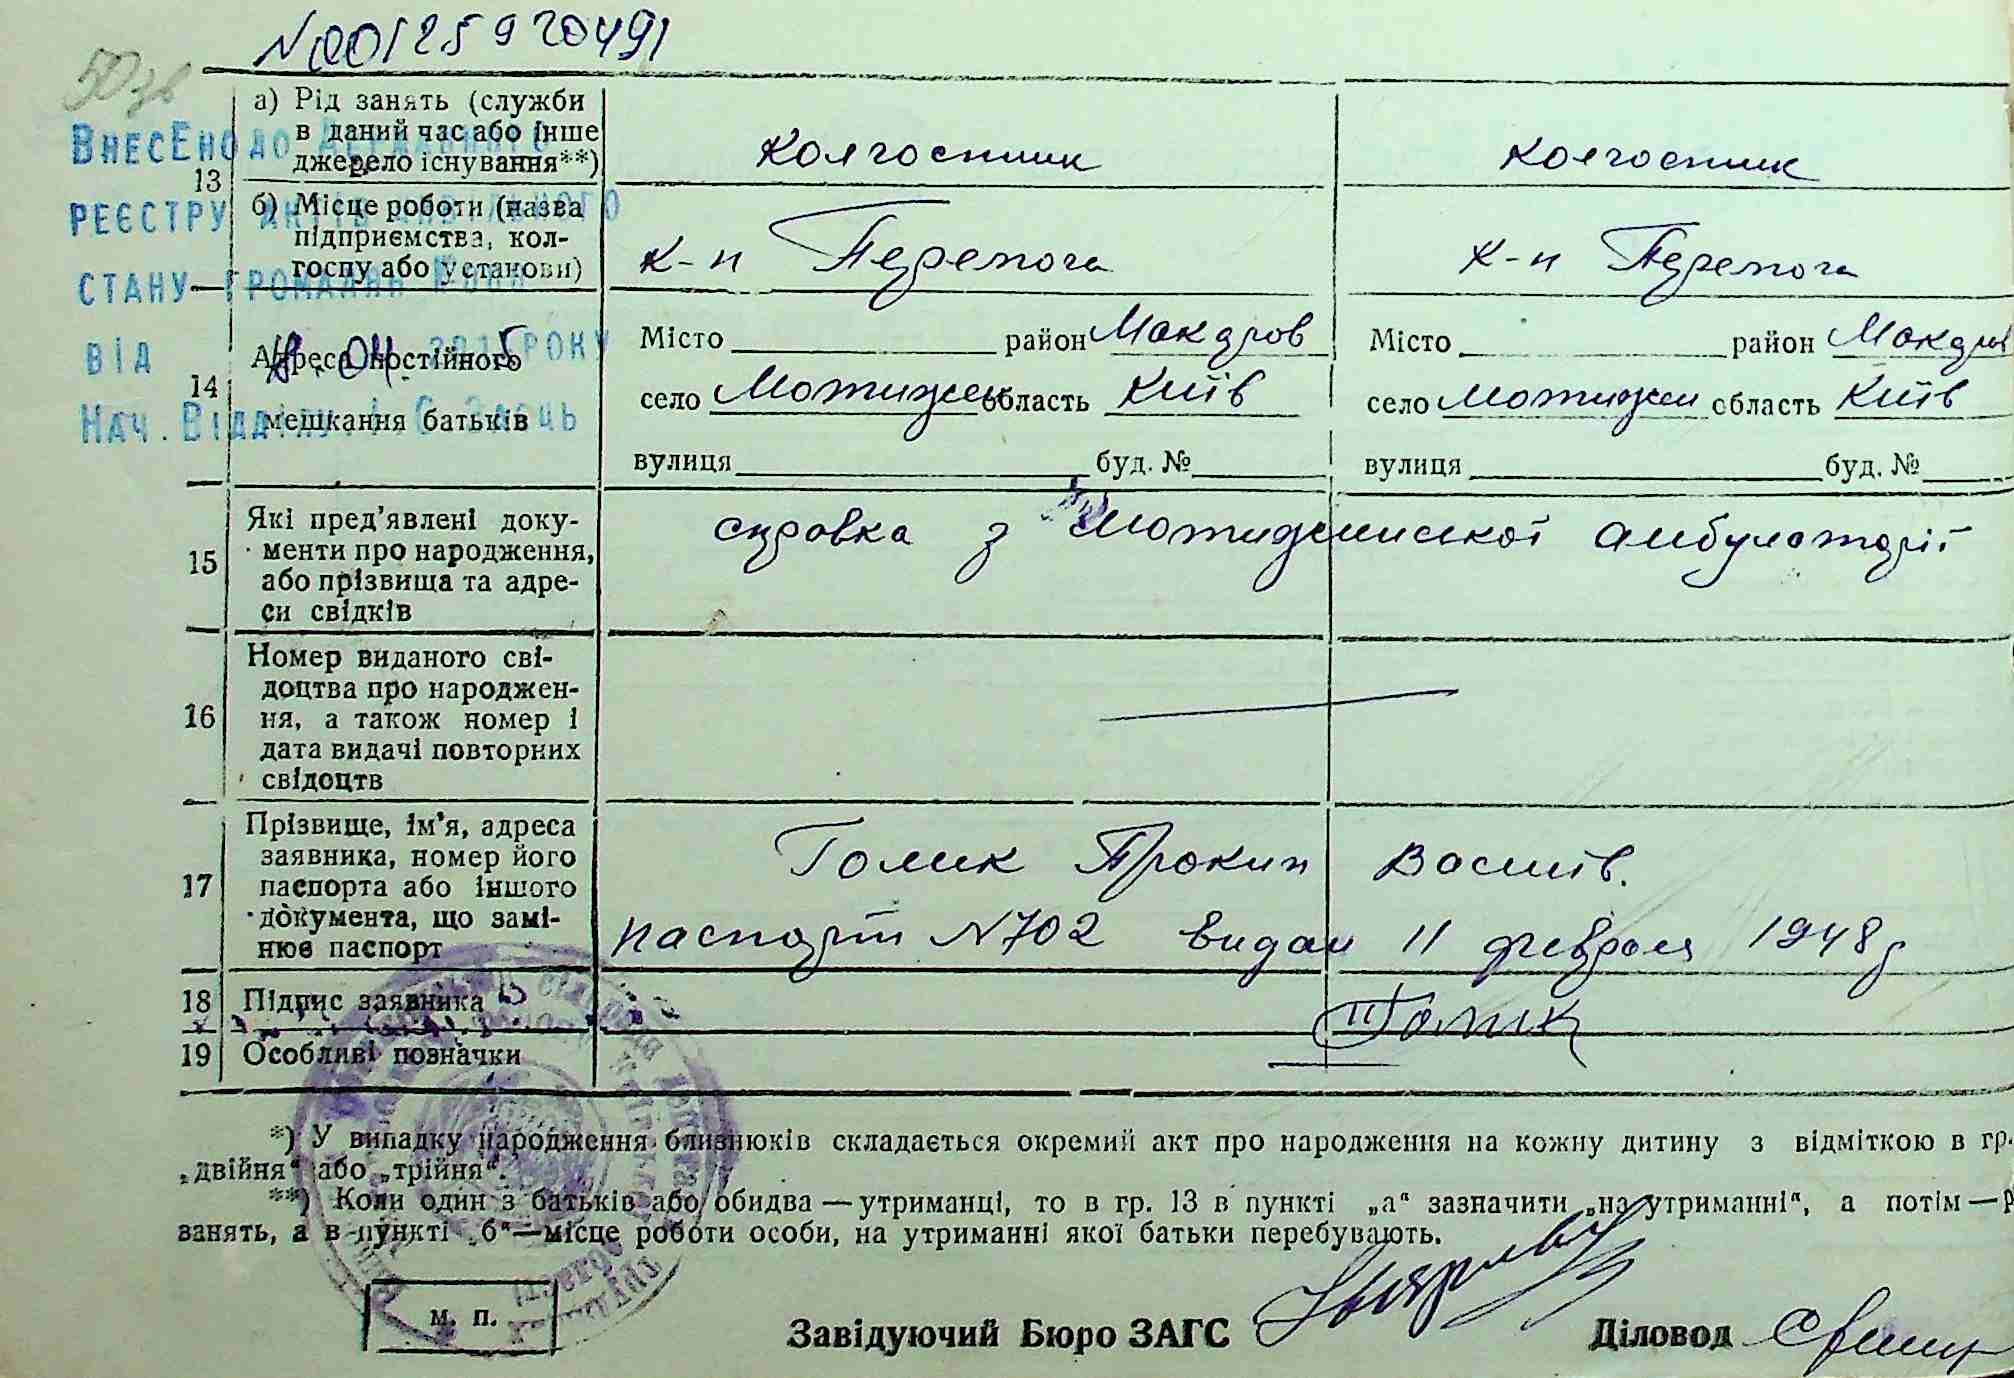 N 00125920491
50зв
Внесено до Державного
реєстру актів цивільного
стану громадян
від 18.04. 2015 року
Нач. Відділу І. С. Заєць
13 а) Рід занять (служби в даний час або інше джерело існування**) колгоспник колгоспник
б) Місце роботи (назва підприємства, колгоспу або установи) к-п Перемога к-п Перемога
14 Адреса постійного мешкання батьків
Місто район Макаров Місто район Макарів
село Мотижен область Київ село Мотижин область Київ
вулиця буд. № вулиця буд. №
15 Які пред'явлені документи про народження, або прізвища та адреси свідків справка з Мотижинської амбулаторії
16 Номер виданого свідоцтва про народження, а також номер і дата видачі повторних свідоцтв
17 Прізвище, ім'я, адреса заявника, номер його паспорта або іншого документа, що замінює паспорт Голик Прокип Васильв.
паспорт N 702 видан 11 февраля 1948 г
18 Підпис заявника Голик
19 Особливі позначки
*) У випадку народження близнюків складається окремий акт про народження на кожну дитину з відміткою в гр.
„двійня“ або „трійня“.
**) Коли один з батьків або обидва — утриманці, то в гр. 13 в пункті „а“ зазначити „на утриманні“, а потім —
занять, а в пункті „б“ — місце роботи особи, на утриманні якої батьки перебувають.
м. п.
Завідуючий Бюро ЗАГС Діловод